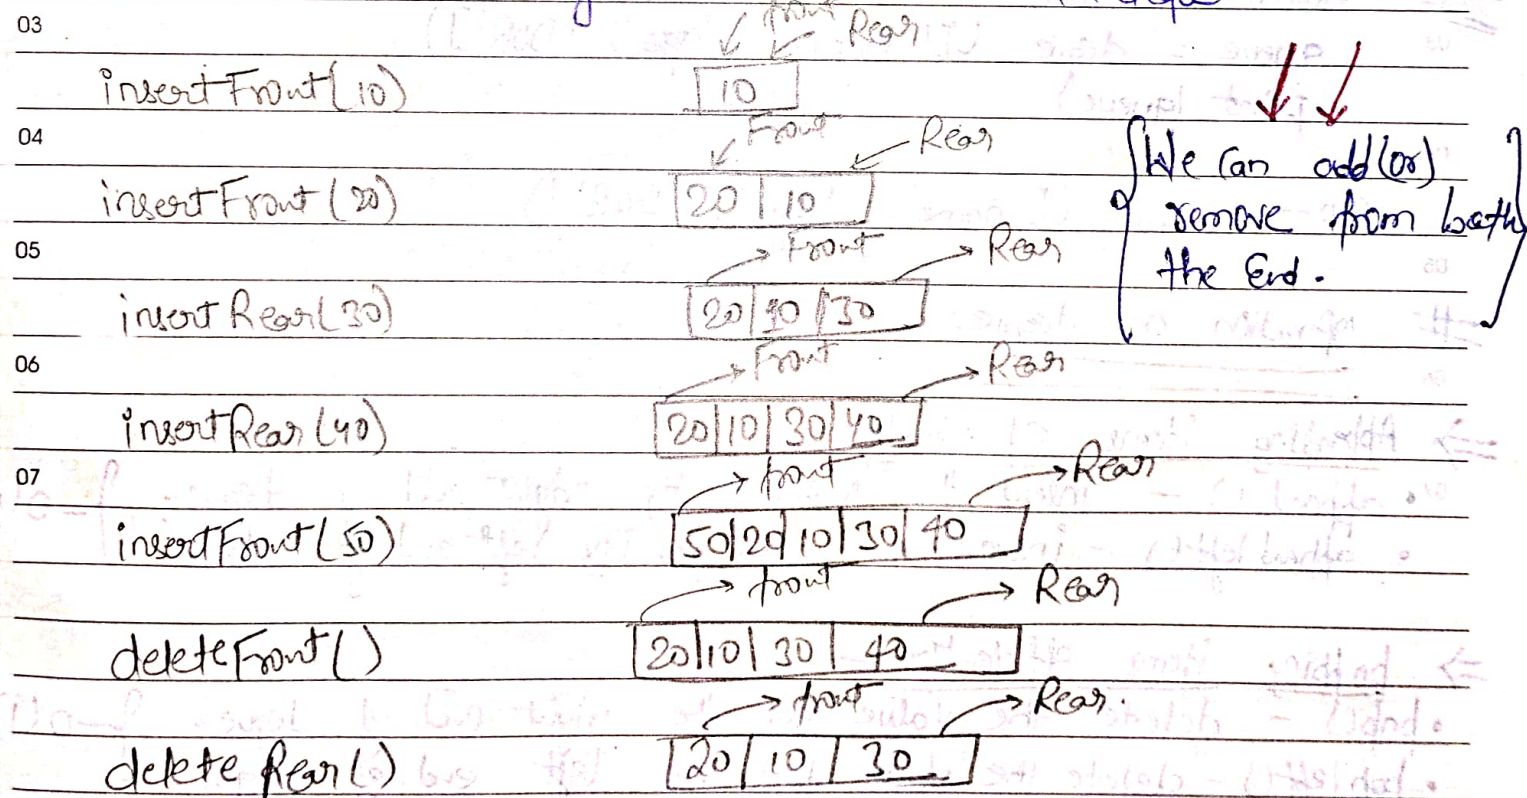 03
front Rear
insertFront(10)
10
04
Front Rear
insertFront(20)
20 | 10
05
Front Rear
insertRear(30)
20 | 10 | 30
06
Front Rear
insertRear(40)
20 | 10 | 30 | 40
07
front Rear
insertFront(50)
50 | 20 | 10 | 30 | 40
front Rear
deleteFront()
20 | 10 | 30 | 40
front Rear.
deleteRear()
20 | 10 | 30
We can add (or)
remove from both
the End.